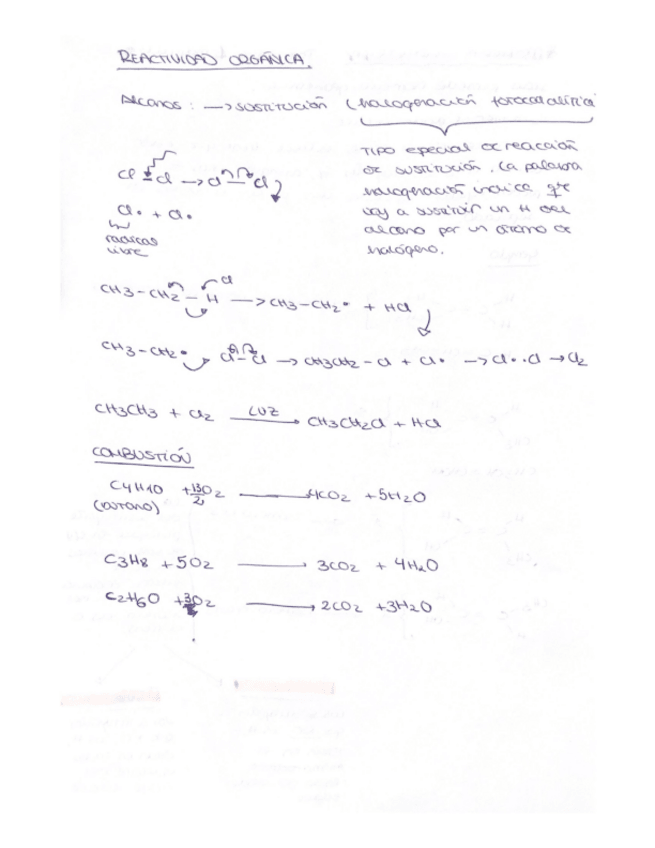 REACTIVIDAD ORGÁNICA.
Alcanos: → sustitución (halogenación fotocatalítica
Tipo especial de reacción
de sustitución. La palabra
halogenación indica que
voy a sustituir un H del
alcano por un átomo de
halógeno.
Cl - Cl → Cl - Cl
Cl• + Cl•
radical
libre
CH3-CH2-H Cl → CH3-CH2• + HCl
CH3-CH2• Cl-Cl → CH3CH2-Cl + Cl• → Cl• •Cl → Cl2
CH3CH3 + Cl2 LUZ → CH3CH2Cl + HCl
COMBUSTIÓN
C4H10 + 13/2 O2 → 4CO2 + 5H2O
(butano)
C3H8 + 5O2 → 3CO2 + 4H2O
C2H6O + 3O2 → 2CO2 + 3H2O